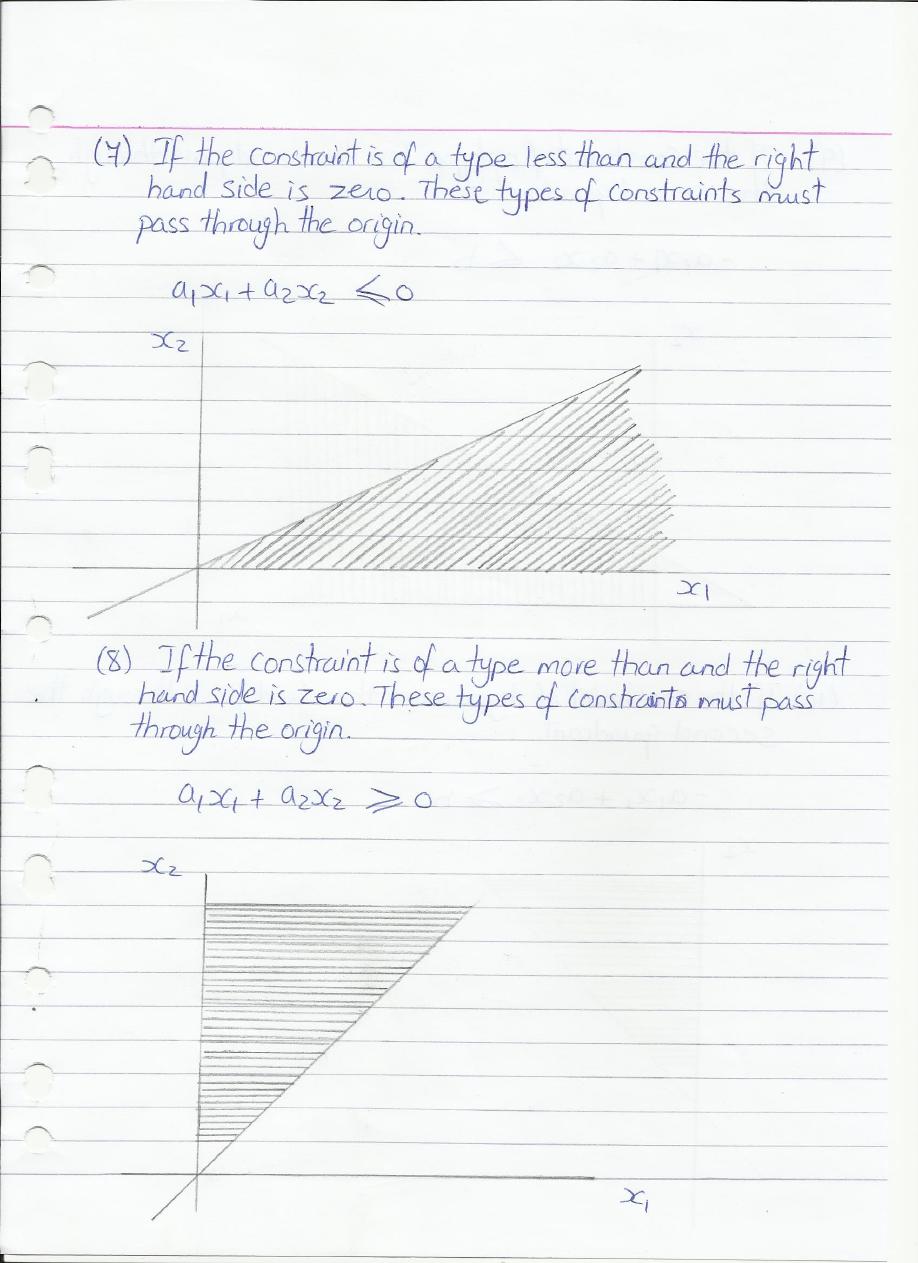 (7) If the constraint is of a type less than and the right
hand side is zero. These types of constraints must
pass through the origin.
a₁x₁ + a₂x₂ ⩽ 0
x₂
x₁
(8) If the constraint is of a type more than and the right
hand side is zero. These types of constraints must pass
through the origin.
a₁x₁ + a₂x₂ ⩾ 0
x₂
x₁